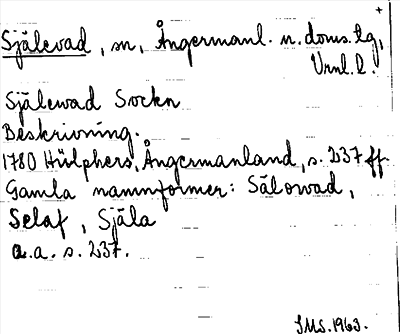 Själevad, sn, Ångermanl. n. doms.tg,
Vrnl.l.
Själevad Sockn
Beskrivning.
1780 Hülphers, Ångermanland, s. 237 ff.
Gamla namnformer: Sälowad,
Selaf, Själa
a.a. s. 237.
SMS. 1963.